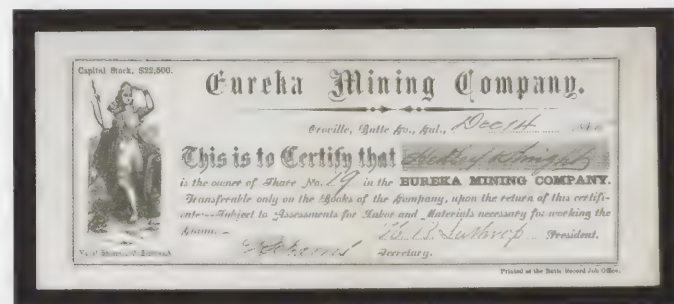 Capital Stock, $22,500.
Eureka Mining Company.
Oroville, Butte Co., Cal., Dec 14
This is to Certify that Knight
is the owner of Share No. 19 in the EUREKA MINING COMPANY.
Transferable only on the Books of the Company, upon the return of this certifi-
cate—Subject to Assessments for Labor and Materials necessary for working the
Claim.—
Lathrop President.
Secretary.
Printed at the Butte Record Job Office.